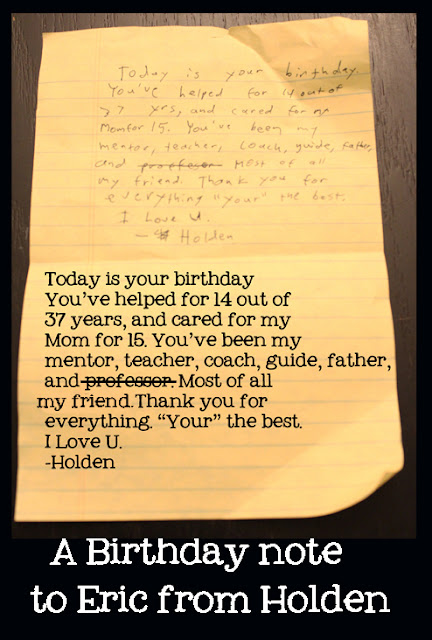 Today is your birthday.
You've helped for 14 out of
37 yrs, and cared for my
Mom for 15. You've been my
mentor, teacher, coach, guide, father,
and proffesor. Most of all
my friend. Thank you for
everything "your" the best.
I Love U.
- Holden
Today is your birthday
You've helped for 14 out of
37 years, and cared for my
Mom for 15. You've been my
mentor, teacher, coach, guide, father,
and professor. Most of all
my friend.Thank you for
everything. “Your” the best.
I Love U.
-Holden
A Birthday note
to Eric from Holden